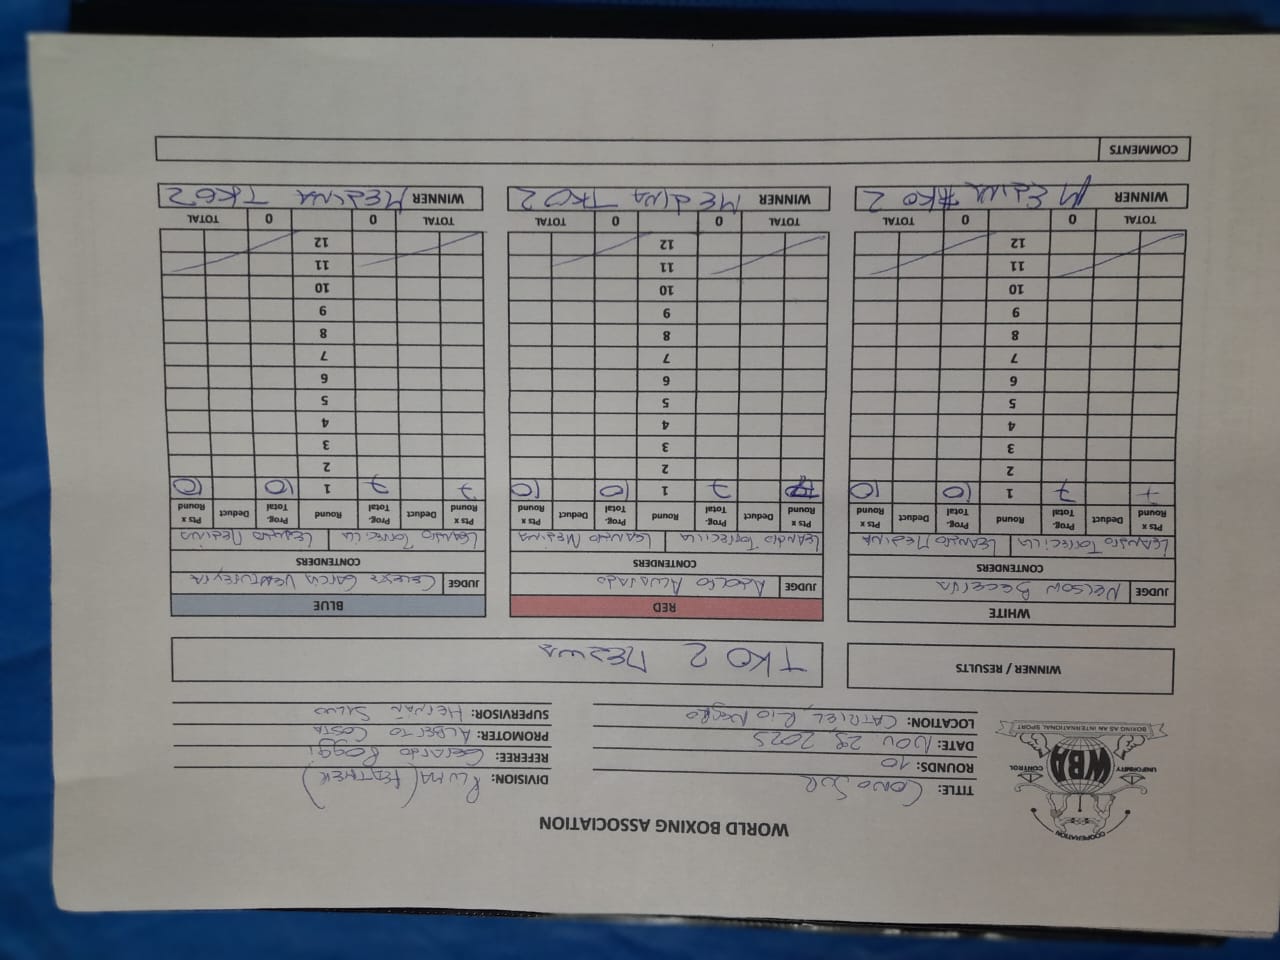 COOPERATION
UNIFORMITY WBA CONTROL
BOXING AS AN INTERNATIONAL SPORT
WORLD BOXING ASSOCIATION
TITLE: CONO SUR
DIVISION: PLUMA (FEATHER)
ROUNDS: 10
REFEREE: Gerardo Poggi
DATE: NOV 28, 2025
PROMOTER: ALBERTO COSTA
LOCATION: CATRIEL, RIO NEGRO
SUPERVISOR: HERNAN
WINNER / RESULTS
TKO 2 MEDINA
WHITE RED BLUE
JUDGE NELSON BECERRA JUDGE ADOLFO JUDGE CELESTE GARCIA
CONTENDERS CONTENDERS CONTENDERS
LEANDRO TORRECILLA LEANDRO MEDINA LEANDRO TORRECILLA LEANDRO MEDINA LEANDRO LEANDRO MEDINA
Pts x Round Deduct Prog. Total Round Prog. Total Deduct Pts x Round Pts x Round Deduct Prog. Total Round Prog. Total Deduct Pts x Round Pts x Round Deduct Prog. Total Round Prog. Total Deduct Pts x Round
7 7 1 10 10 7 1 10 10 7 7 1 10 10
2 2 2
3 3 3
4 4 4
5 5 5
6 6 6
7 7 7
8 8 8
9 9 9
10 10 10
11 11 11
12 12 12
TOTAL 0 0 TOTAL TOTAL 0 0 TOTAL TOTAL 0 0 TOTAL
WINNER MEDINA TKO 2 WINNER MEDINA TKO 2 WINNER MEDINA TKO 2
COMMENTS